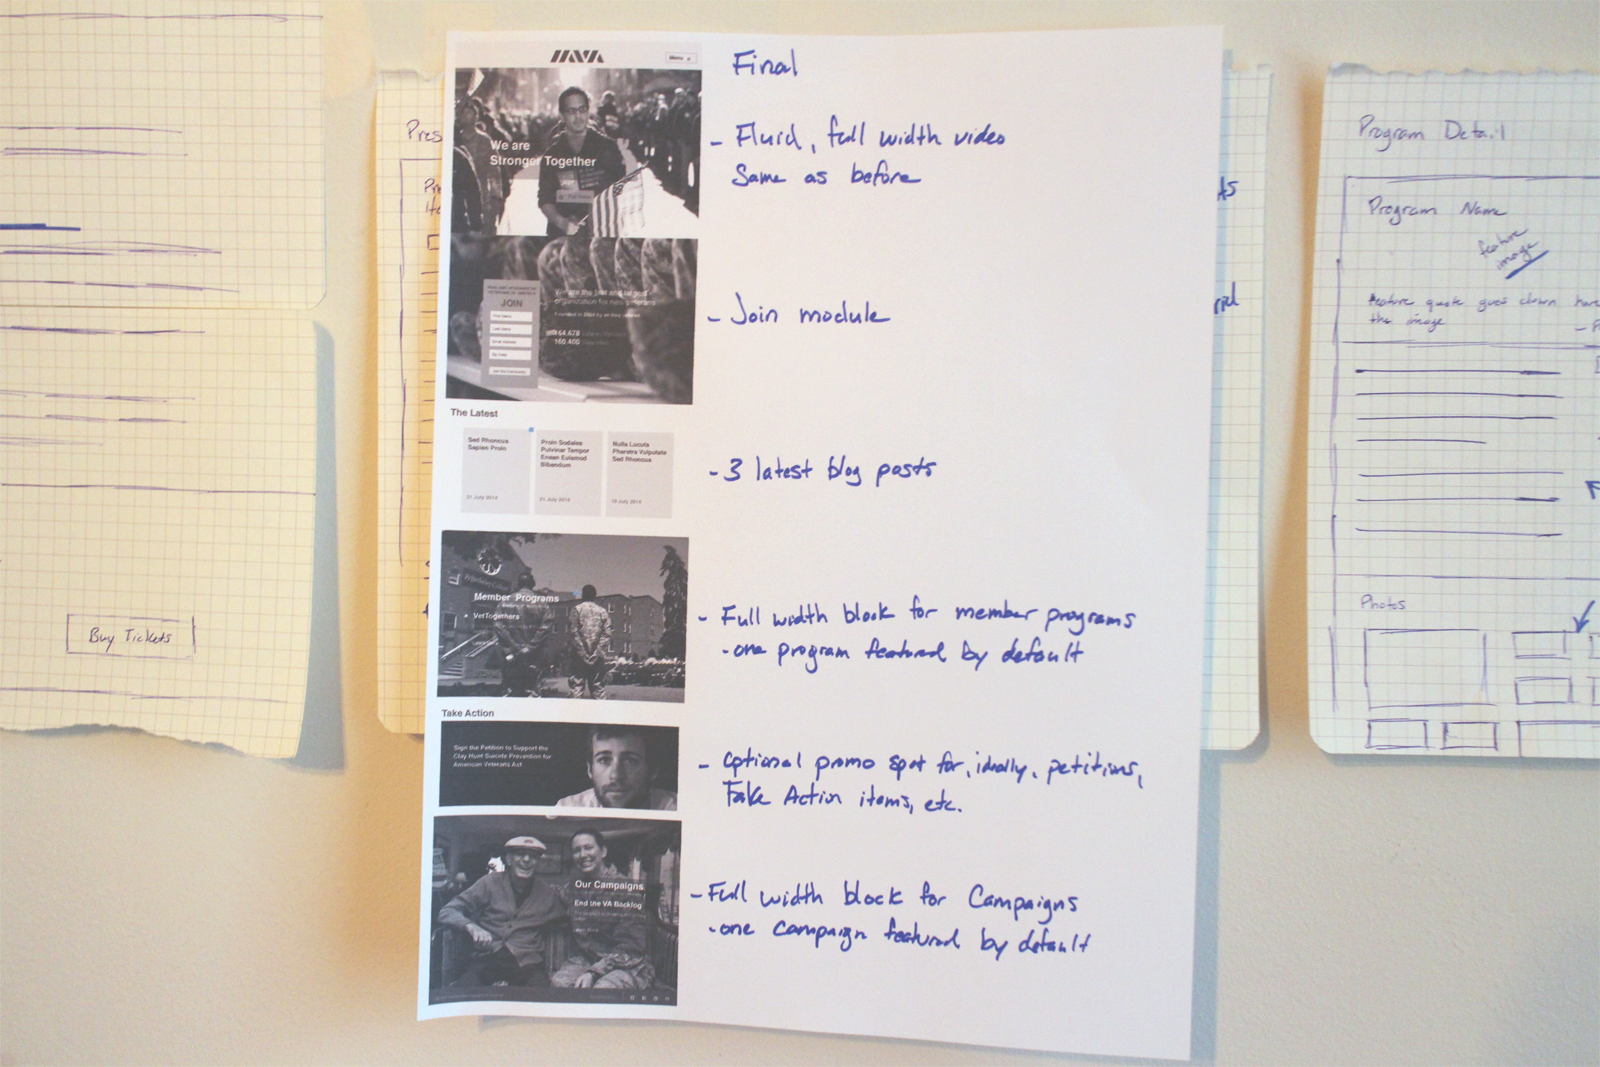 Buy Tickets
IAVA
Menu
We are
Stronger Together
JOIN
First Name
Last Name
Email Address
Zip Code
We are the first and largest
organization for new veterans
164,678
160,400
The Latest
Sed Rhoncus
Sapien Proin
21 July 2014
Proin Sodales
Pulvinar Tempor
Eneen Euismod
Bibendum
21 July 2014
Nulla Lucuts
Pharetra Vulputate
Sed Rhoncus
19 July 2014
Member Programs
VetTogethers
Take Action
Sign the Petition to Support the
Clay Hunt Suicide Prevention for
American Veterans Act
Our Campaigns
End the VA Backlog
Final
- Fluid, full width video
Same as before
- Join module
- 3 latest blog posts
- Full width block for member programs
- one program featured by default
- Optional promo spot for, ideally, petitions,
Take Action items, etc.
- Full width block for Campaigns
- one campaign featured by default
Program Detail
Program Name
feature
image
feature quote goes down here
the image
Photos